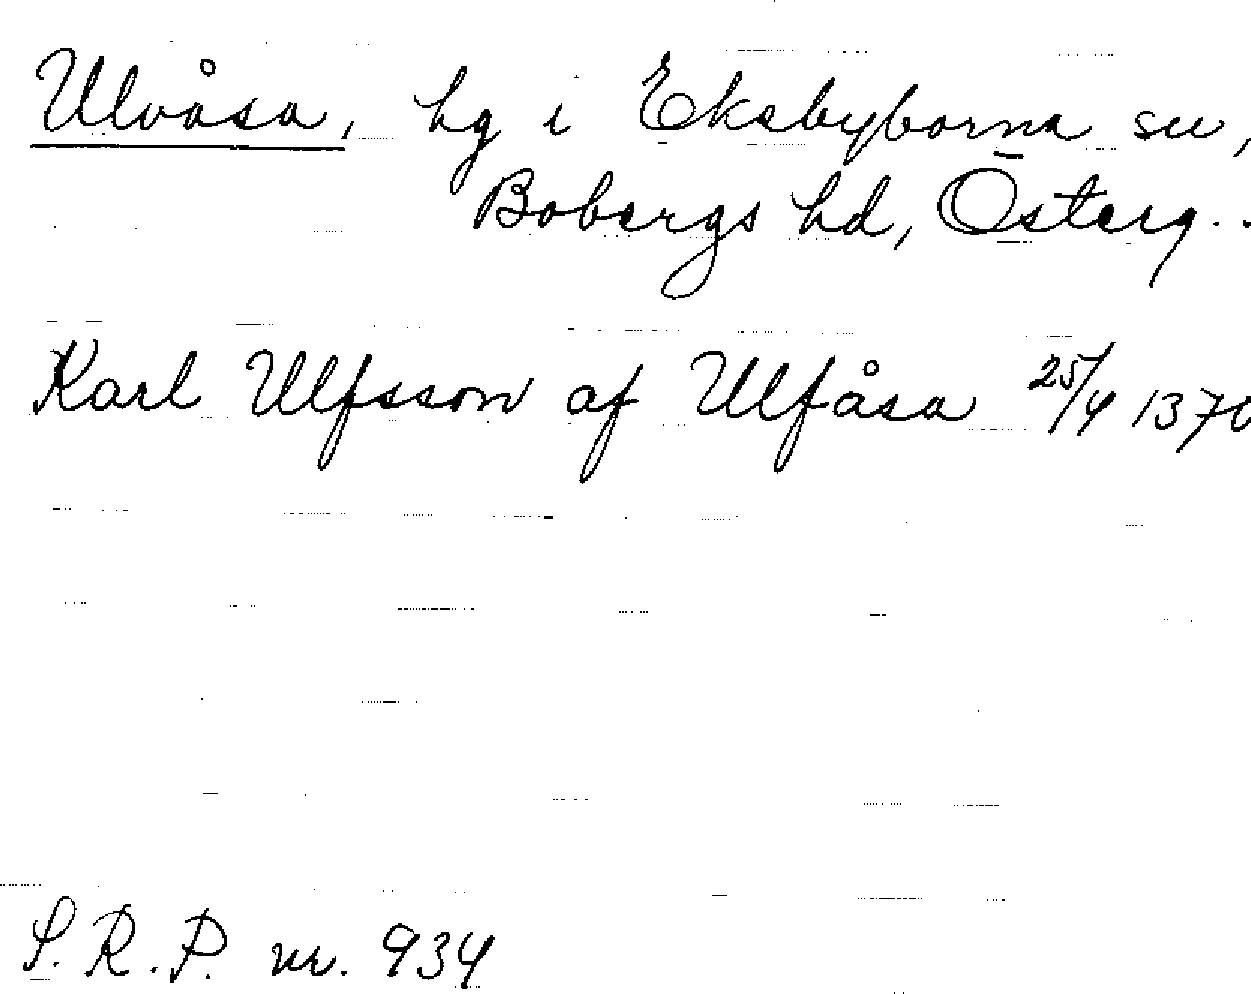 Ulvåsa, hg i Eksbyborna sn,
Bobergs hd, Österg..
Karl Ulfsson af Ulfåsa 25/4 1370
S.R.P. nr. 934